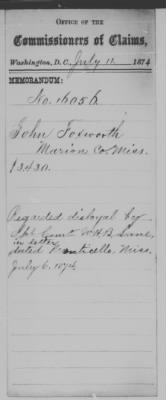 OFFICE OF THE
Commissioners of Claims,
Washington, D. C., July 11, 1874
MEMORANDUM:
No. 16056
John Foxworth
Marion Co. Miss.
Regarded disloyal by
in letter
dated Monticello, Miss.
July 6, 1874